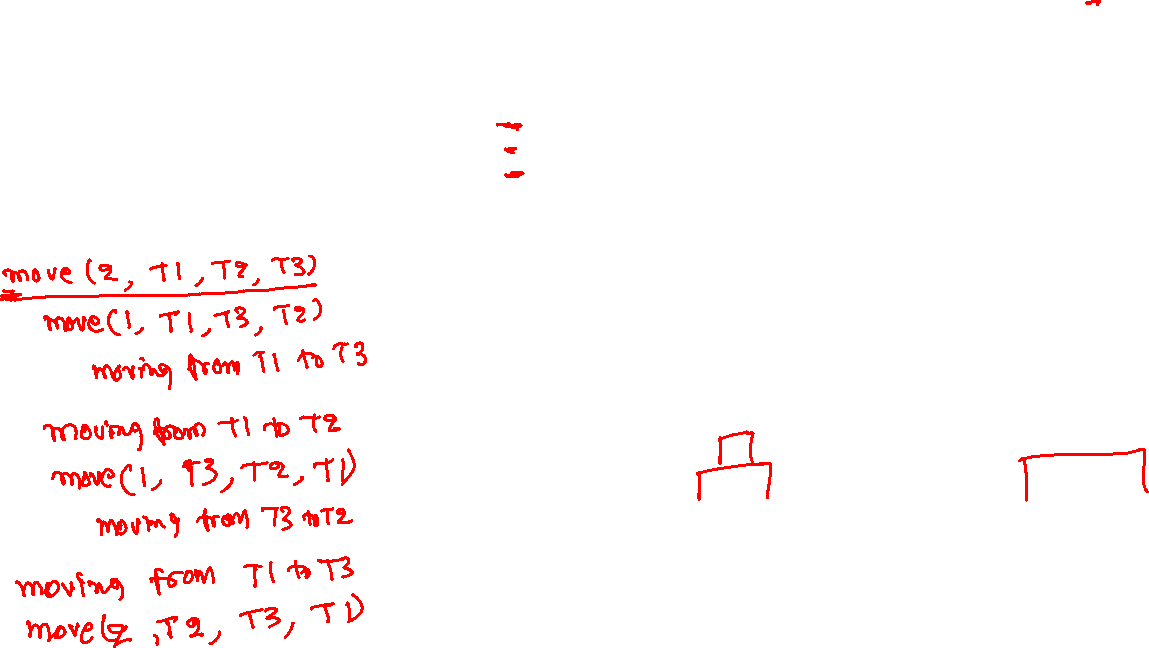 move (2, T1, T2, T3)
move(1, T1, T3, T2)
moving from T1 to T3
moving from T1 to T2
move(1, T3, T2, T1)
moving from T3 to T2
moving from T1 to T3
move(2, T2, T3, T1)